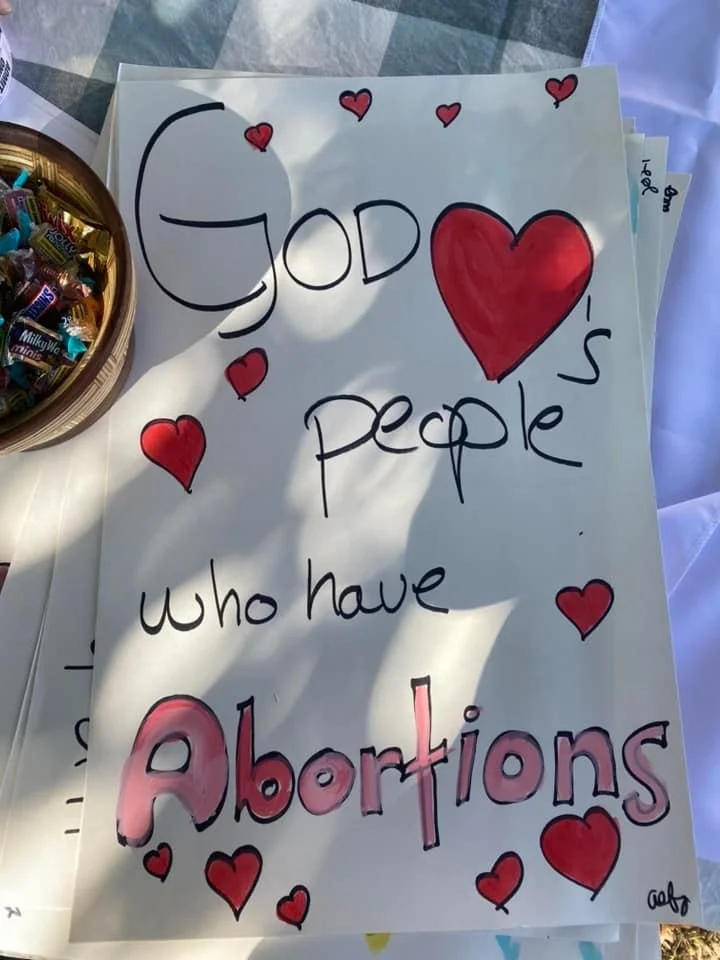 GOD ❤'s
people
who have
Abortions
MilkyWa
minis